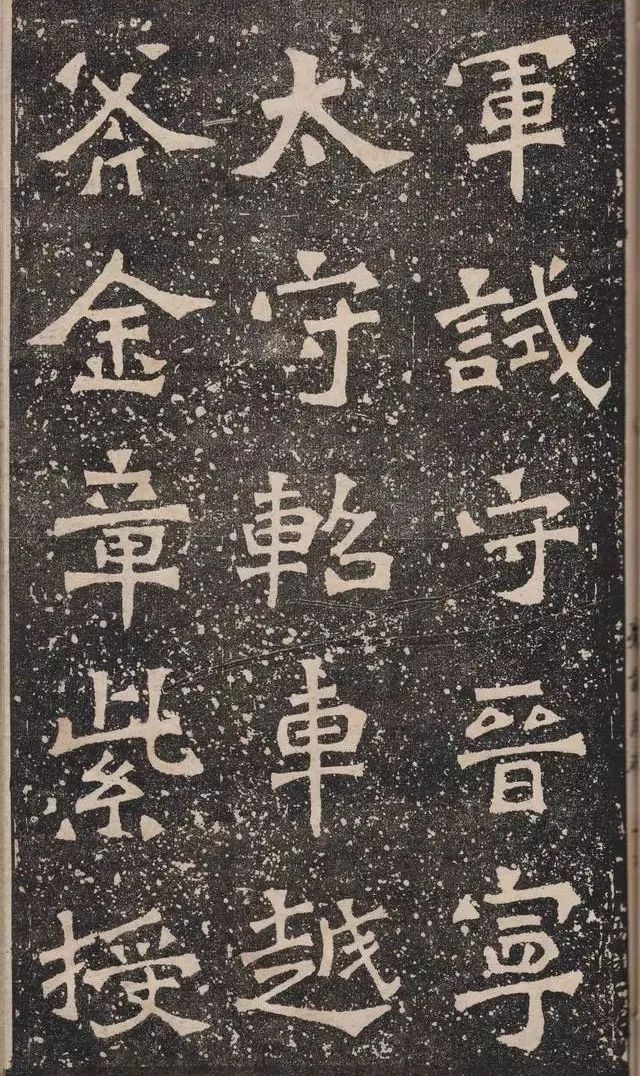 軍試守晉寧
太守軺車越
斧金章紫授